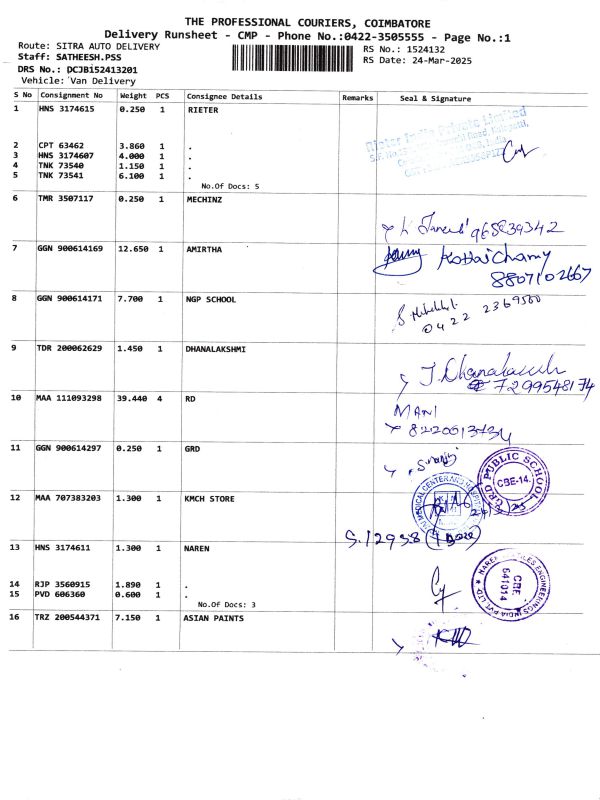 THE PROFESSIONAL COURIERS, COIMBATORE
Delivery Runsheet - CMP - Phone No.:0422-3505555 - Page No.:1
Route: SITRA AUTO DELIVERY
RS No.: 1524132
Staff: SATHEESH.PSS
RS Date: 24-Mar-2025
DRS No.: DCJB152413201
Vehicle: Van Delivery
S No Consignment No Weight PCS Consignee Details Remarks Seal & Signature
1 HNS 3174615 0.250 1 RIETER
Rieter India Private Limited
2 CPT 63462 3.860 1 .
3 HNS 3174607 4.000 1 .
4 TNK 73540 1.150 1 .
5 TNK 73541 6.100 1 .
No.Of Docs: 5
6 TMR 3507117 0.250 1 MECHINZ
7 GGN 900614169 12.650 1 AMIRTHA
Kottai Chamy
8807102667
8 GGN 900614171 7.700 1 NGP SCHOOL
0422 2369500
9 TDR 200062629 1.450 1 DHANALAKSHMI
J. Dhanalakshmi
7299548174
10 MAA 111093298 39.440 4 RD
MANI
11 GGN 900614297 0.250 1 GRD
GRD PUBLIC SCHOOL
CBE-14.
12 MAA 707383203 1.300 1 KMCH STORE
S.12938
13 HNS 3174611 1.300 1 NAREN
14 RJP 3560915 1.890 1 .
CBE
641014
15 PVD 606360 0.600 1 .
No.Of Docs: 3
16 TRZ 200544371 7.150 1 ASIAN PAINTS